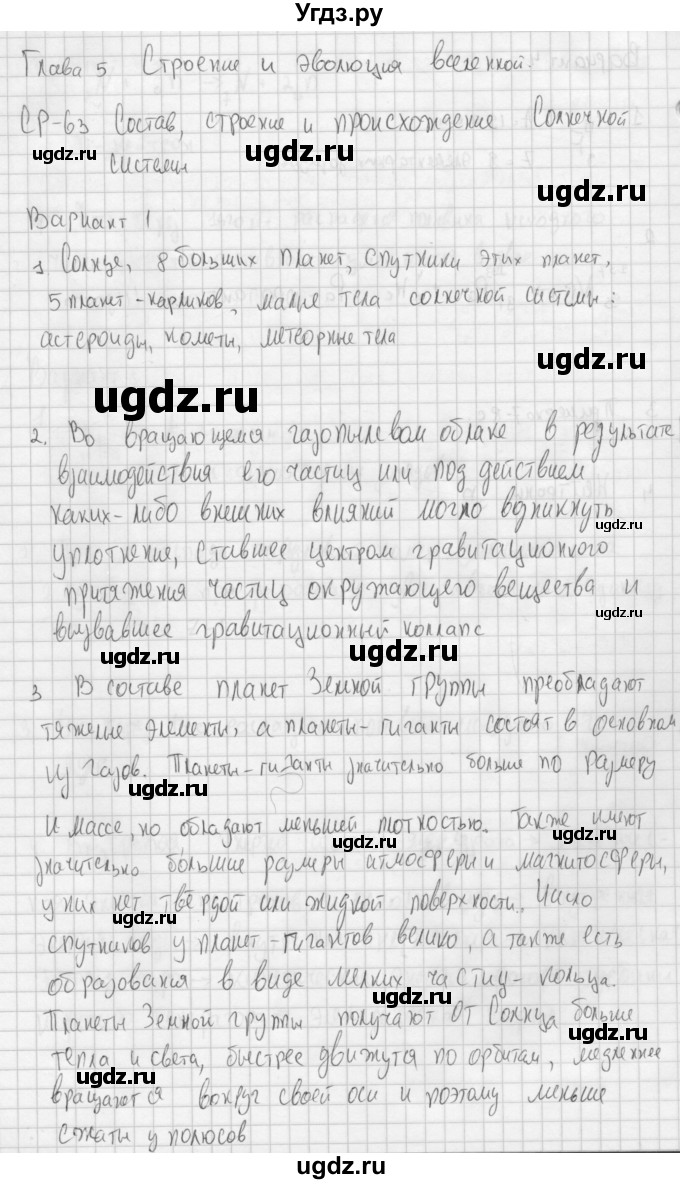 Угдз.ру
Глава 5 Строение и эволюция вселенной.
СР-63 Состав, строение и происхождение Солнечной
ugdz.ru
ugdz.ru
системы
ugdz.ru
Вариант 1
1 Солнце, 8 больших планет, спутники этих планет,
5 планет-карликов, малые тела солнечной системы:
астероиды, кометы, метеорные тела
ugdz.ru
ugdz.ru
2. Во вращающемся газопылевом облаке в результате
взаимодействия его частиц или под действием
каких-либо внешних влияний могло возникнуть
ugdz.ru
уплотнение, ставшее центром гравитационного
притяжения частиц окружающего вещества и
ugdz.ru
вызвавшее гравитационный коллапс
ugdz.ru
ugdz.ru
3 В составе планет Земной группы преобладают
тяжелые элементы, а планеты-гиганты состоят в основном
из газов. Планеты-гиганты значительно больше по размеру
ugdz.ru
и массе, но обладают меньшей плотностью. Также имеют
ugdz.ru
значительно большие размеры атмосферы и магнитосферы,
у них нет твёрдой или жидкой поверхности. Число
ugdz.ru
спутников у планет-гигантов велико, а также есть
образования в виде мелких частиц - кольца.
ugdz.ru
Планеты Земной группы получают от Солнца больше
ugdz.ru
тепла и света, быстрее движутся по орбитам, медленнее
ugdz.ru
вращаются вокруг своей оси и поэтому меньше
сжаты у полюсов
ugdz.ru